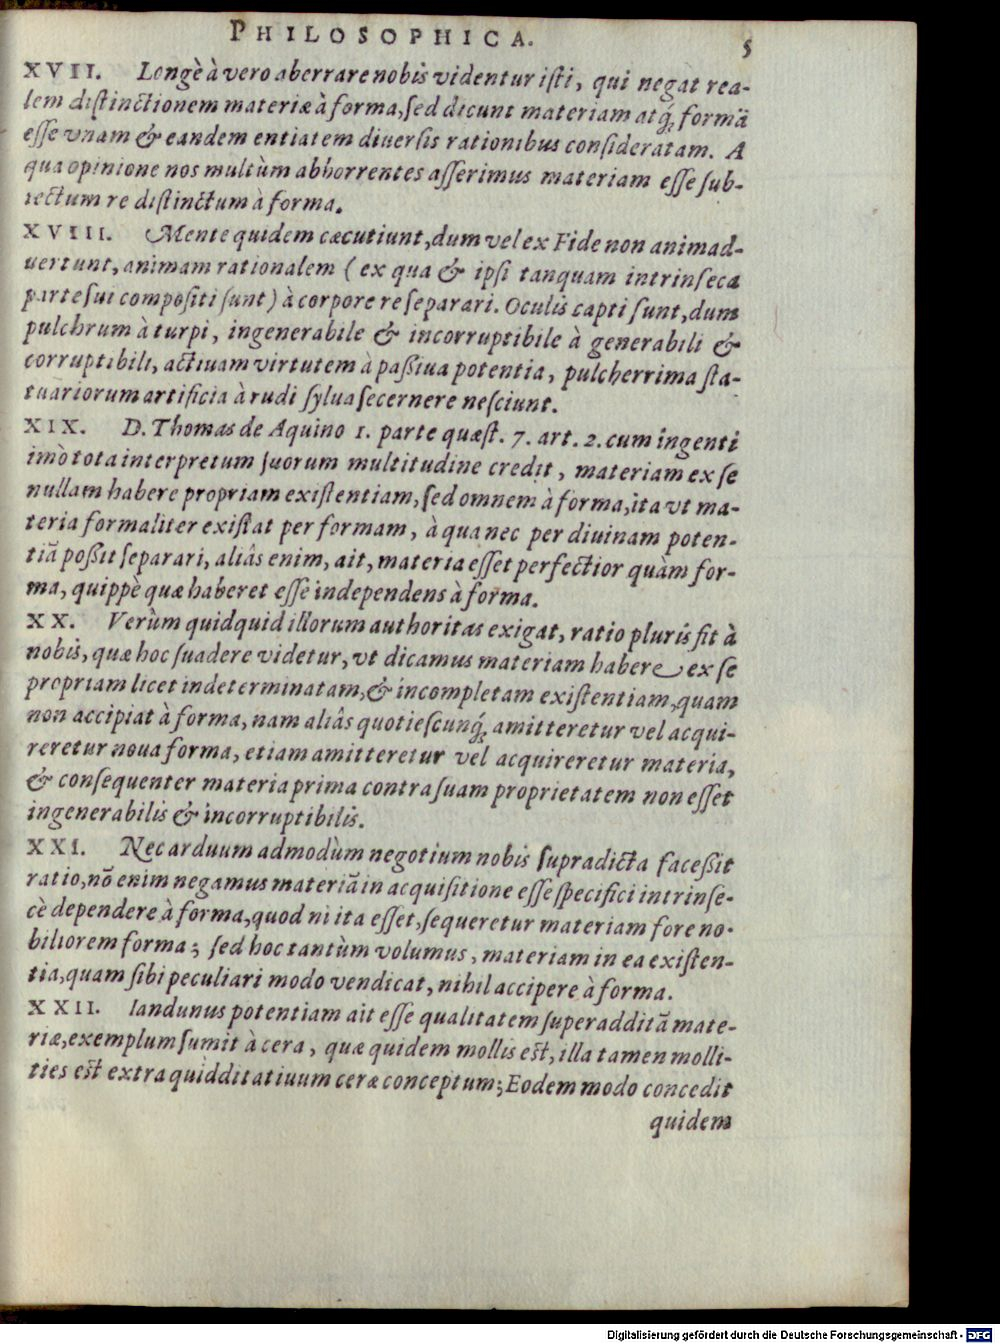 PHILOSOPHICA. 5
XVII. Longè à vero aberrare nobis videntur iſti, qui negāt rea-
lem diſtinctionem materiæ à forma, ſed dicunt materiam atq́; formā
eſſe vnam & eandem entiatem diuerſis rationibus conſideratam. A
qua opinione nos multùm abhorrentes aſſerimus materiam eſſe ſub-
iectum re diſtinctum à forma.
XVIII. Mente quidem cæcutiunt, dum vel ex Fide non animad-
uertunt, animam rationalem (ex qua & ipſi tanquam intrinſeca
parte ſui compoſiti ſunt) à corpore re ſeparari. Oculis capti ſunt, dum
pulchrum à turpi, ingenerabile & incorruptibile à generabili &
corruptibili, actiuam virtutem à paßiua potentia, pulcherrima ſta-
tuariorum artificia à rudi ſylua ſecernere neſciunt.
XIX. D. Thomas de Aquino 1. parte quæſt. 7. art. 2. cum ingenti
imò tota interpretum ſuorum multitudine credit, materiam ex ſe
nullam habere propriam exiſtentiam, ſed omnem à forma, ita vt ma-
teria formaliter exiſtat per formam, à qua nec per diuinam poten-
tiā poßit ſeparari, aliâs enim, ait, materia eſſet perfectior quàm for-
ma, quippè quæ haberet eſſe independens à forma.
XX. Verùm quidquid illorum authoritas exigat, ratio pluris fit à
nobis, quæ hoc ſuadere videtur, vt dicamus materiam habere ex ſe
propriam licet indeterminatam, & incompletam exiſtentiam, quam
non accipiat à forma, nam aliâs quotieſcunq́; amitteretur vel acqui-
reretur noua forma, etiam amitteretur vel acquireretur materia,
& conſequenter materia prima contra ſuam proprietatem non eſſet
ingenerabilis & incorruptibilis.
XXI. Nec arduum admodùm negotium nobis ſupradicta faceßit
ratio, nō enim negamus materiā in acquiſitione eſſe ſpecifici intrinſe-
cè dependere à forma, quod ni ita eſſet, ſequeretur materiam fore no-
biliorem forma; ſed hoc tantùm volumus, materiam in ea exiſten-
tia, quam ſibi peculiari modo vendicat, nihil accipere à forma.
XXII. Iandunus potentiam ait eſſe qualitatem ſuperadditā mate-
riæ, exemplum ſumit à cera, quæ quidem mollis eſt, illa tamen molli-
ties eſt extra quidditatiuum ceræ conceptum; Eodem modo concedit
quidem
Digitalisierung gefördert durch die Deutsche Forschungsgemeinschaft - DFG